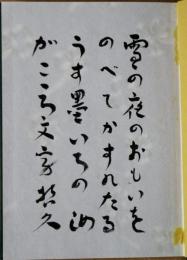 雪の夜のおもいを
のべてかすれたる
うす墨いろの汝
がこころ文字哲久